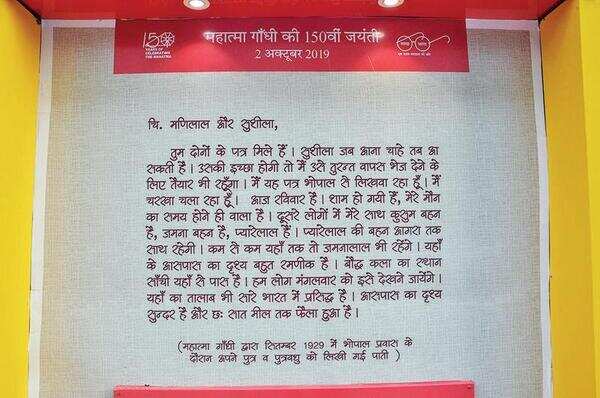 150
YEARS OF
CELEBRATING
THE MAHATMA
महात्मा गाँधी की 150वीं जयंती
2 अक्टूबर 2019
चि. मणिलाल और सुशीला,
तुम दोनों के पत्र मिले हैं । सुशीला जब आना चाहे तब आ
सकती है । उसकी इच्छा होगी तो मैं उसे तुरन्त वापस भेज देने के
लिए तैयार भी रहूँगा । मैं यह पत्र भोपाल से लिखवा रहा हूँ । मैं
चरखा चला रहा हूँ । आज रविवार है । शाम हो गयी है, मेरे मौन
का समय होने ही वाला है । दूसरे लोगों में मेरे साथ कुसुम बहन
है, जमना बहन है, प्यारेलाल हैं । प्यारेलाल की बहन आगरा तक
साथ रहेगी । कम से कम यहाँ तक तो जमनालाल भी रहेंगे । यहाँ
के आसपास का दृश्य बहुत रमणीक है । बौद्ध कला का स्थान
साँची यहाँ से पास है । हम लोग मंगलवार को इसे देखने जायेंगे ।
यहाँ का तालाब भी सारे भारत में प्रसिद्ध है । आसपास का दृश्य
सुन्दर है और छः सात मील तक फैला हुआ है ।
(महात्मा गाँधी द्वारा सितम्बर 1929 में भोपाल प्रवास के
दौरान अपने पुत्र व पुत्रवधु को लिखी गई पाती )